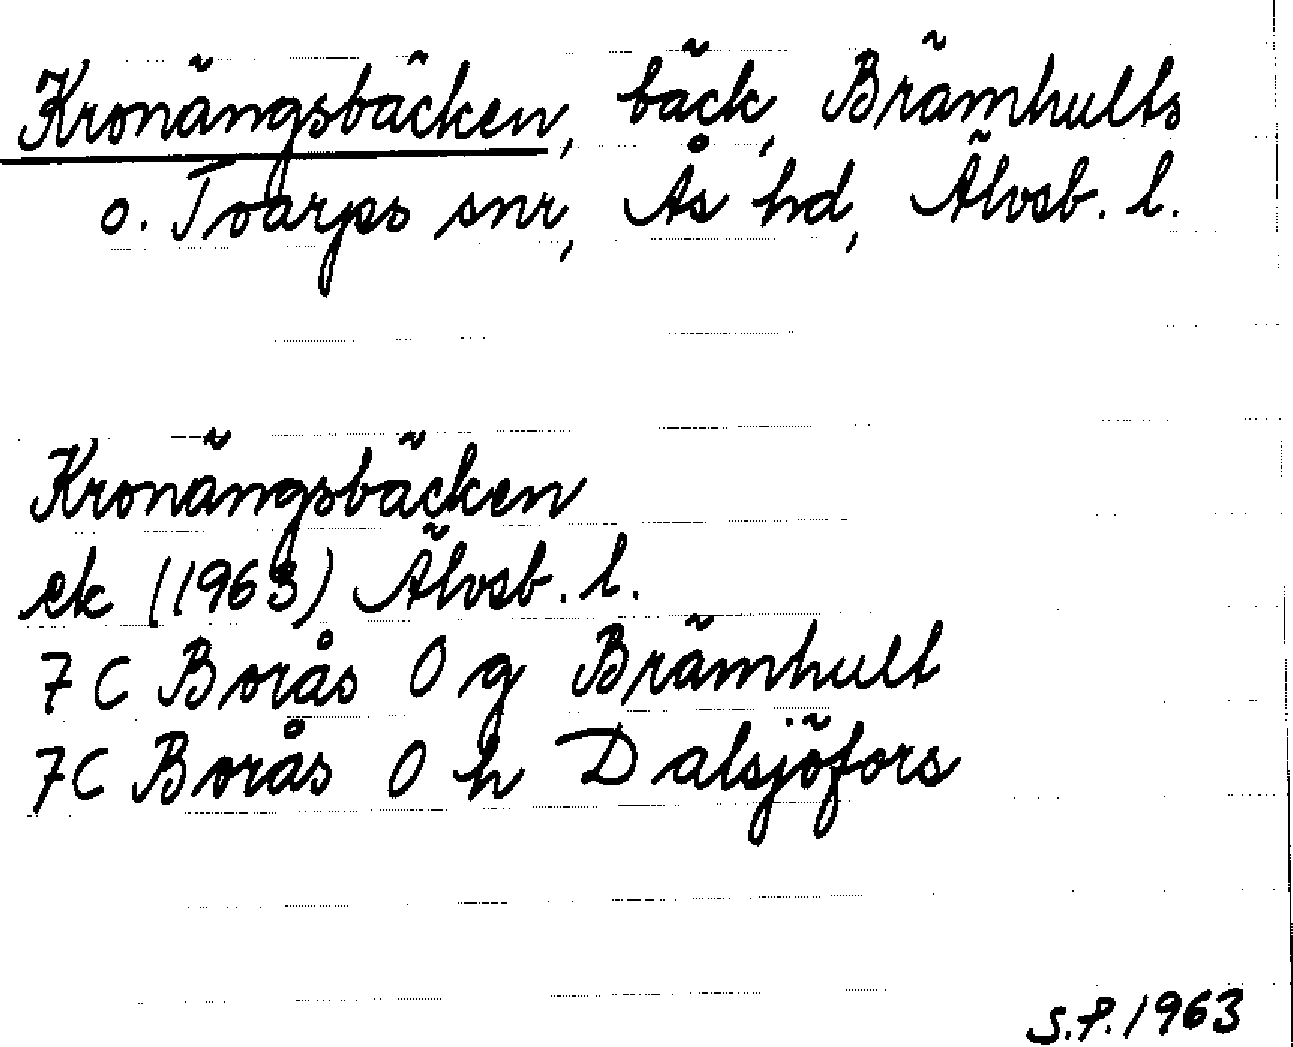 Kronängsbäcken, bäck, Brämhults
o. Toarps snr, Ås hd, Älvsb. l.
Kronängsbäcken
ek (1963) Älvsb. l.
7 C Borås 0 g Brämhult
7 C Borås 0 h Dalsjöfors
S.P. 1963